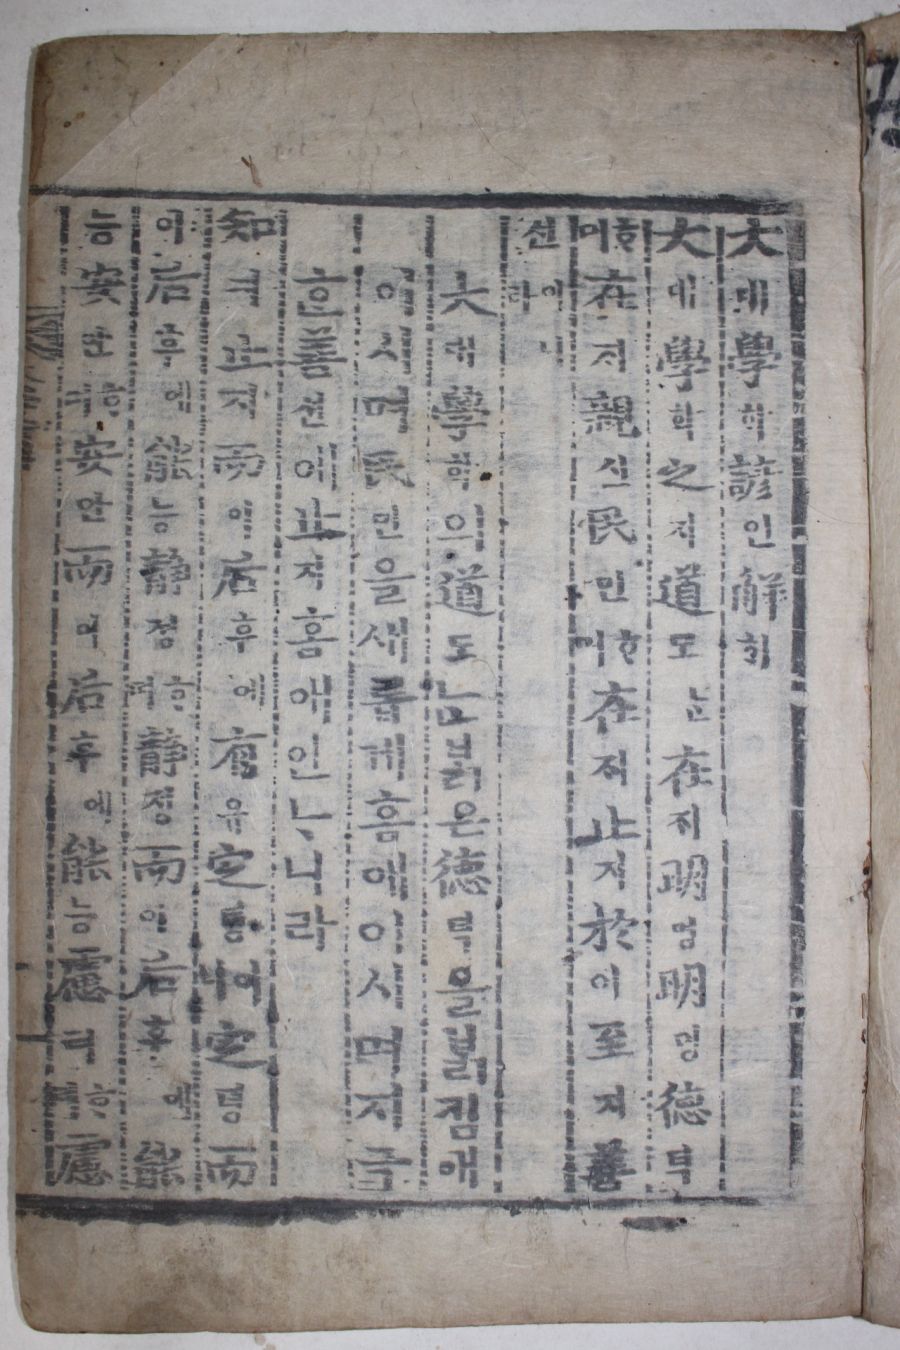 大대學학諺언解ᄒᆡ
大대學학之지道도ᄂᆞᆫ在ᄌᆡ明명明명德덕
ᄒᆞ며在ᄌᆡ親신民민ᄒᆞ며在ᄌᆡ止지於어至지善
션이니라
大대學학의道도ᄂᆞᆫ ᄇᆞᆯ근德덕을ᄇᆞᆯ킴애
이시며民민을새롭게홈애이시며지극
ᄒᆞᆫ善션에止지홈애인ᄂᆞ니라
知지止지而이后후에有유定뎡이니定뎡而
이后후에能능靜졍ᄒᆞ며靜졍而이后후에能
능安안ᄒᆞ며安안而이后후에能능慮려ᄒᆞ며慮